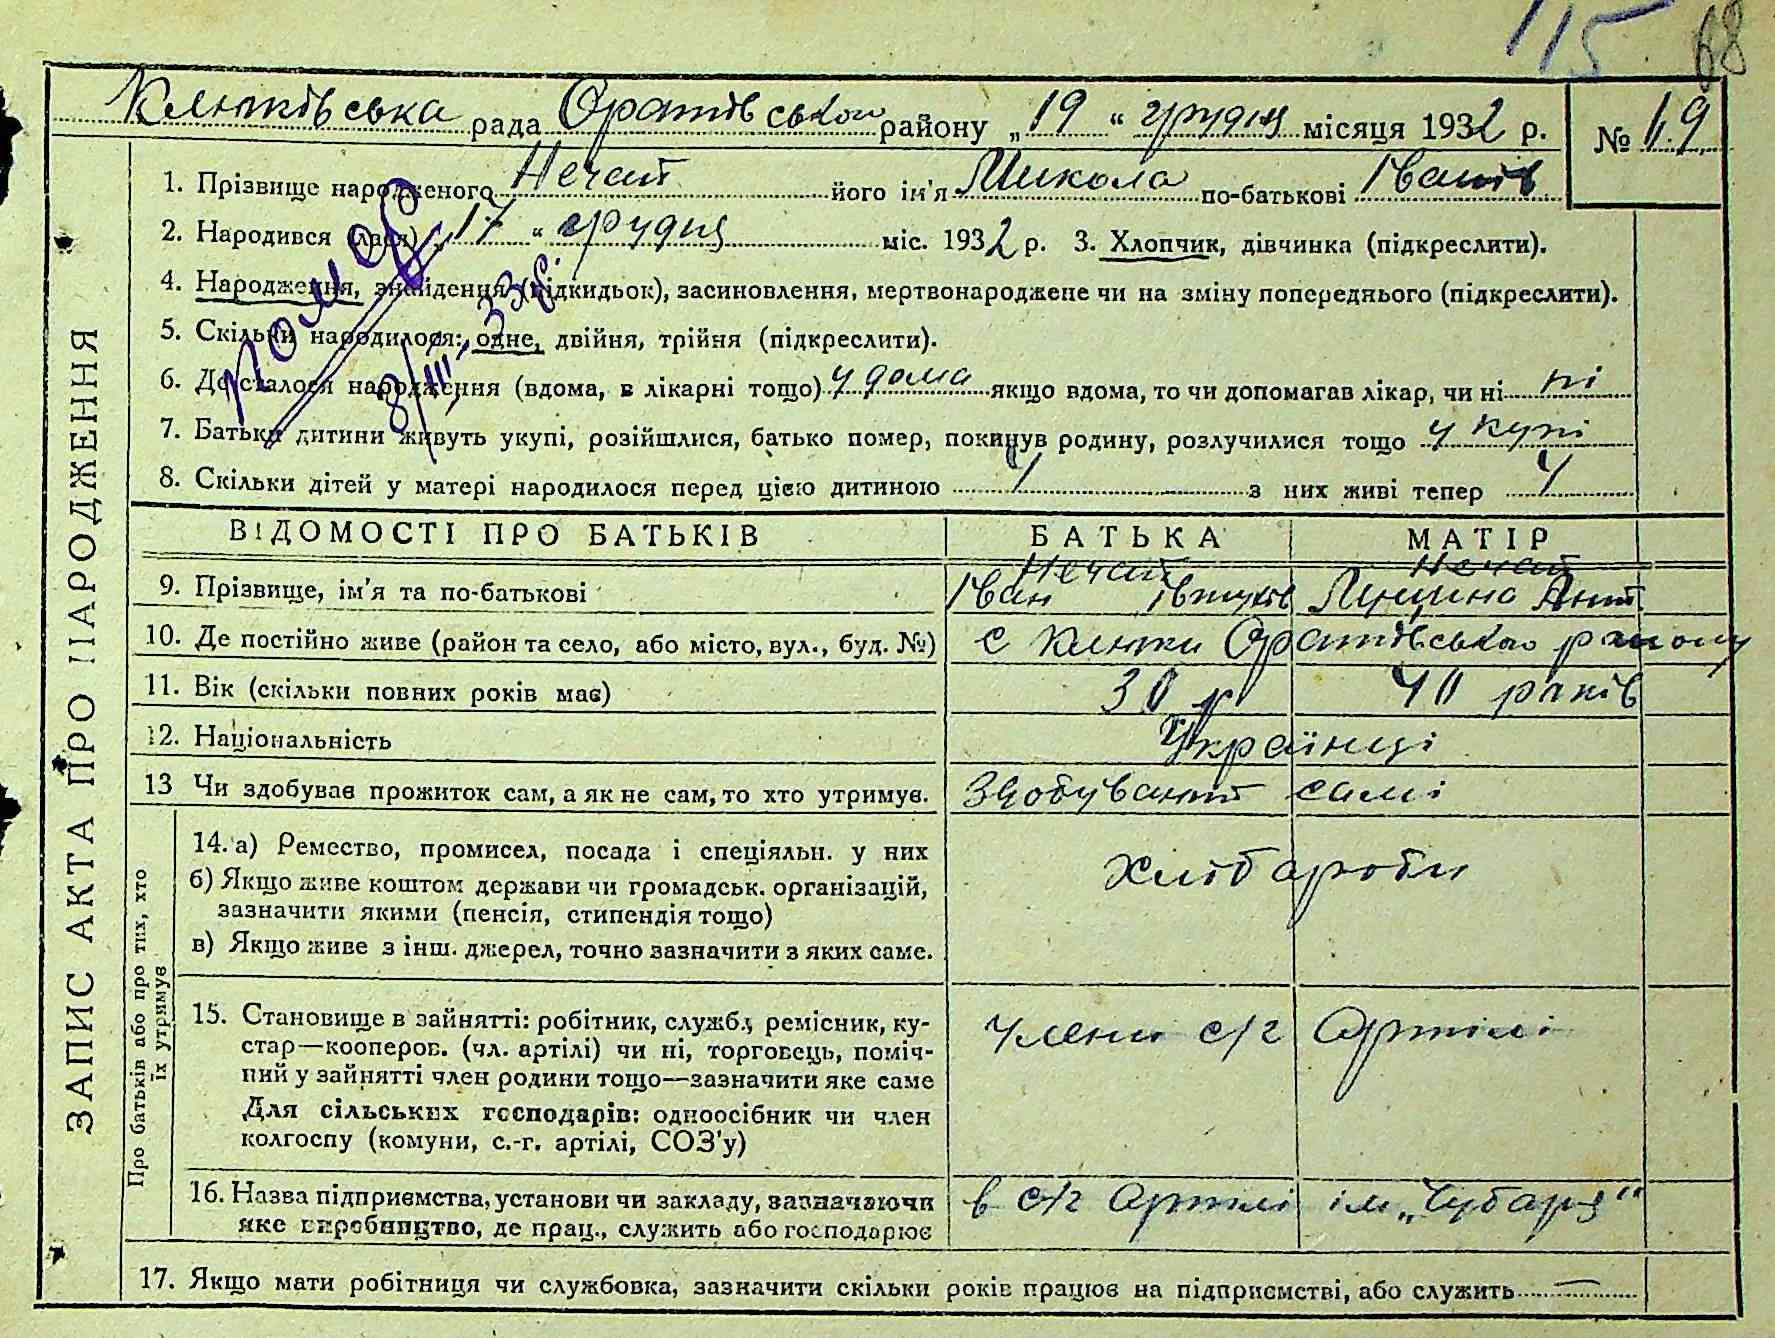 115 68
Клюківська рада Оратівського району „19“ грудня місяця 1932 р. № 119
1. Прізвище народженого Нечай його ім'я Микола по-батькові Іванів
2. Народився (лася) „17“ грудня міс. 1932 р. 3. Хлопчик, дівчинка (підкреслити).
4. Народження, знайдення (підкидьок), засиновлення, мертвонароджене чи на зміну попереднього (підкреслити).
5. Скільки народилося: одне, двійня, трійня (підкреслити).
6. Де сталося народження (вдома, в лікарні тощо) у дома якщо вдома, то чи допомагав лікар, чи ні ні
7. Батьки дитини живуть укупі, розійшлися, батько помер, покинув родину, розлучилися тощо у купі
8. Скільки дітей у матері народилося перед цією дитиною 4 з них живі тепер 4
помер
8/III 33 р.
ЗАПИС АКТА ПРО НАРОДЖЕННЯ
ВІДОМОСТІ ПРО БАТЬКІВ БАТЬКА МАТІР
Нечай Нечай
9. Прізвище, ім'я та по-батькові Іван Івтухів Лукина Ант.
10. Де постійно живе (район та село, або місто, вул., буд. №) с Клюки Оратівського району
11. Вік (скільки повних років має) 30 р 40 років
12. Національність Українці
13 Чи здобуває прожиток сам, а як не сам, то хто утримує. Здобувают самі
Про батьків або про тих, хто
їх утримує
14. а) Ремество, промисел, посада і спеціяльн. у них
б) Якщо живе коштом держави чи громадськ. організацій,
зазначити якими (пенсія, стипендія тощо)
в) Якщо живе з інш. джерел, точно зазначити з яких саме.
Хлібароби
15. Становище в зайнятті: робітник, службл, ремісник, ку-
стар—кооперов. (чл. артілі) чи ні, торговець, поміч-
ний у зайнятті член родини тощо—зазначити яке саме
Для сільських господарів: одноосібник чи член
колгоспу (комуни, с.-г. артілі, СОЗ'у)
члени с/г Артілі
16. Назва підприємства, установи чи закладу, зазначаючи
яке виробництво, де прац., служить або господарює
в с/г Артілі ім „Чубаря“
17. Якщо мати робітниця чи службовка, зазначити скільки років працює на підприємстві, або служить —